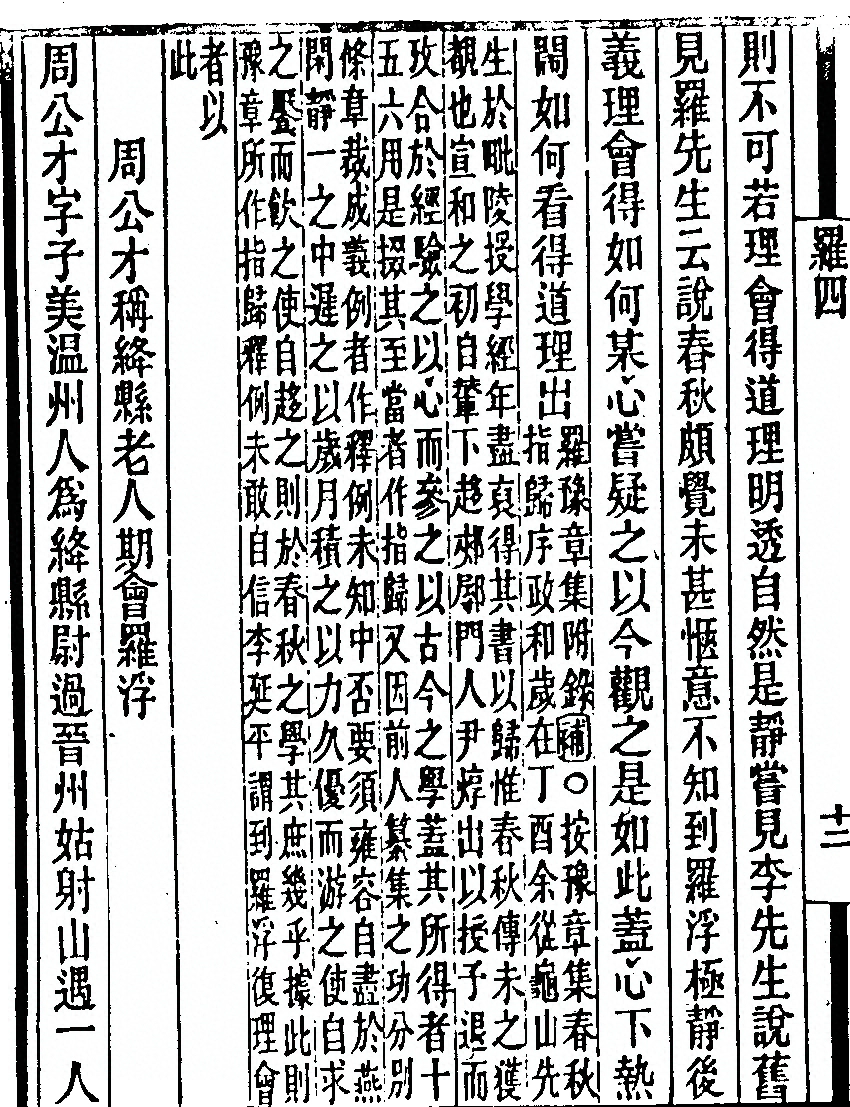 羅四
十二
則不可若理會得道理明透自然是靜嘗見李先生說舊
見羅先生云說春秋頗覺未甚愜意不知到羅浮極靜後
義理會得如何某心嘗疑之以今觀之是如此蓋心下熱
鬧如何看得道理出
羅豫章集附錄補〇按豫章集春秋
指歸序政和歲在丁酉余從龜山先
生於毗陵授學經年盡裒得其書以歸惟春秋傳未之獲
覩也宣和之初自輦下趍郟鄏門人尹焞出以授予退而
攷合於經驗之以心而參之以古今之學蓋其所得者十
五六用是掇其至當者作指歸又因前人纂集之功分別
條章裁成義例者作釋例未知中否要須雍容自盡於燕
閑靜一之中遲之以歲月積之以力久優而游之使自求
之饜而飫之使自趍之則於春秋之學其庶幾乎據此則
豫章所作指歸釋例未敢自信李延平謂到羅浮復理會
者以
此
周公才稱絳縣老人期會羅浮
周公才字子美温州人爲絳縣尉過晉州姑射山遇一人